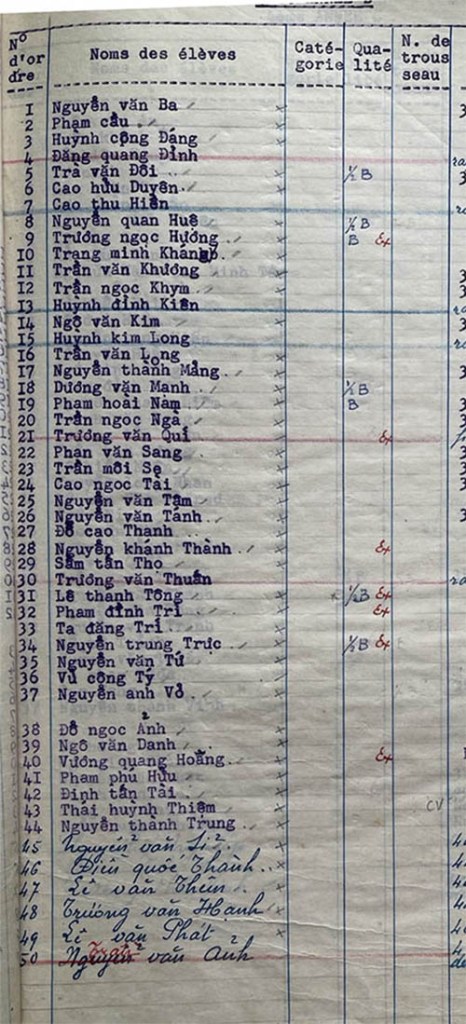 N° d'ordre Noms des élèves Catégorie Qualité N. de trousseau
1 Nguyễn văn Ba
2 Phạm cầu
3 Huỳnh công Đáng
4 Đặng quang Đỉnh
5 Trà văn Đôi ½ B
6 Cao hữu Duyên
7 Cao thu Hiền
8 Nguyễn quan Huê ½ B
9 Trương ngọc Hướng B Ex
10 Trang minh Khánh
11 Trần văn Khương
12 Trần ngọc Khym
13 Huỳnh đình Kiên
14 Ngô văn Kim
15 Huỳnh kim Long
16 Trần văn Long
17 Nguyễn thành Mảng
18 Dương văn Mạnh ½ B
19 Phạm hoài Nam B
20 Trần ngọc Ngà
21 Trương văn Quí Ex
22 Phan văn Sang
23 Trần môi Sẹ
24 Cao ngọc Tải
25 Nguyễn văn Tâm
26 Nguyễn văn Tánh
27 Đỗ cao Thanh
28 Nguyễn khánh Thành Ex
29 Sầm tấn Tho
30 Trương văn Thuấn
31 Lê thanh Tông ½ B Ex
32 Phạm đình Trí Ex
33 Tạ đăng Trí
34 Nguyễn trung Trực ½ B Ex
35 Nguyễn văn Tứ
36 Vũ công Tý
37 Nguyễn anh Vỏ
2
38 Đỗ ngọc Anh
39 Ngô văn Danh
40 Vương quang Hoằng Ex
41 Phạm phú Hữu
42 Đinh tấn Tài
43 Thái huỳnh Thiệm CV
44 Nguyễn thành Trung
45 Nguyễn văn Sĩ
46 Điều quốc Thành
47 Lê văn Thêm
48 Trương văn Hạnh
49 Lê văn Phát
50 Nguyễn văn Ảnh